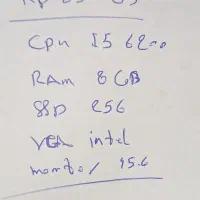 Cpu I5 6200
RAM 8 GB
SSD 256
VGA intel
monitor 15.6